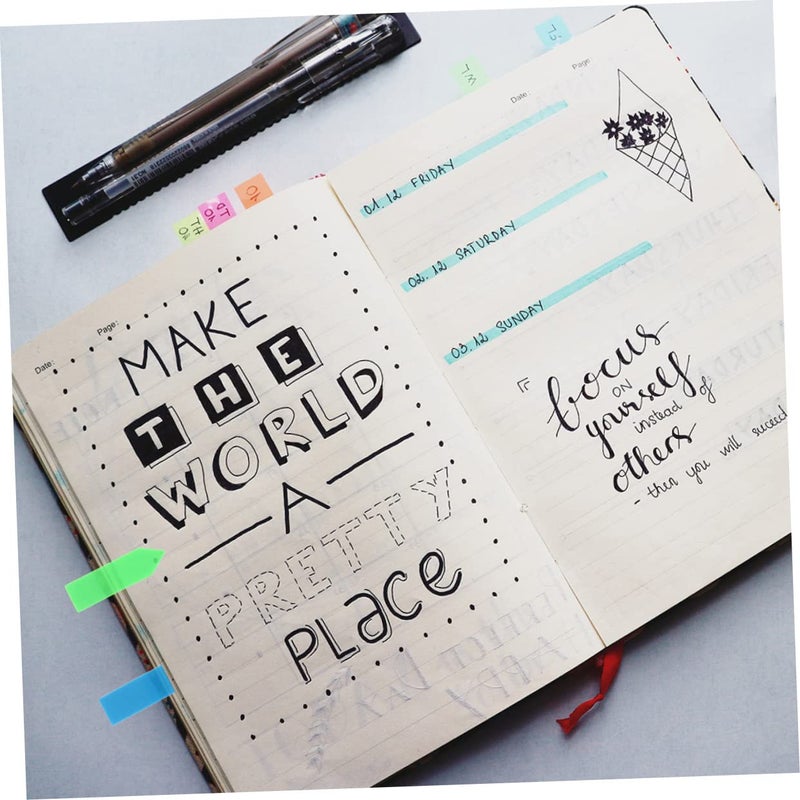 Date:
Page:
MAKE
THE
WORLD
A
PRETTY
PLACE
Date:
Page
01.12 FRIDAY
02.12 SATURDAY
03.12 SUNDAY
focus
ON
yourself
instead of
others
- then you will succeed